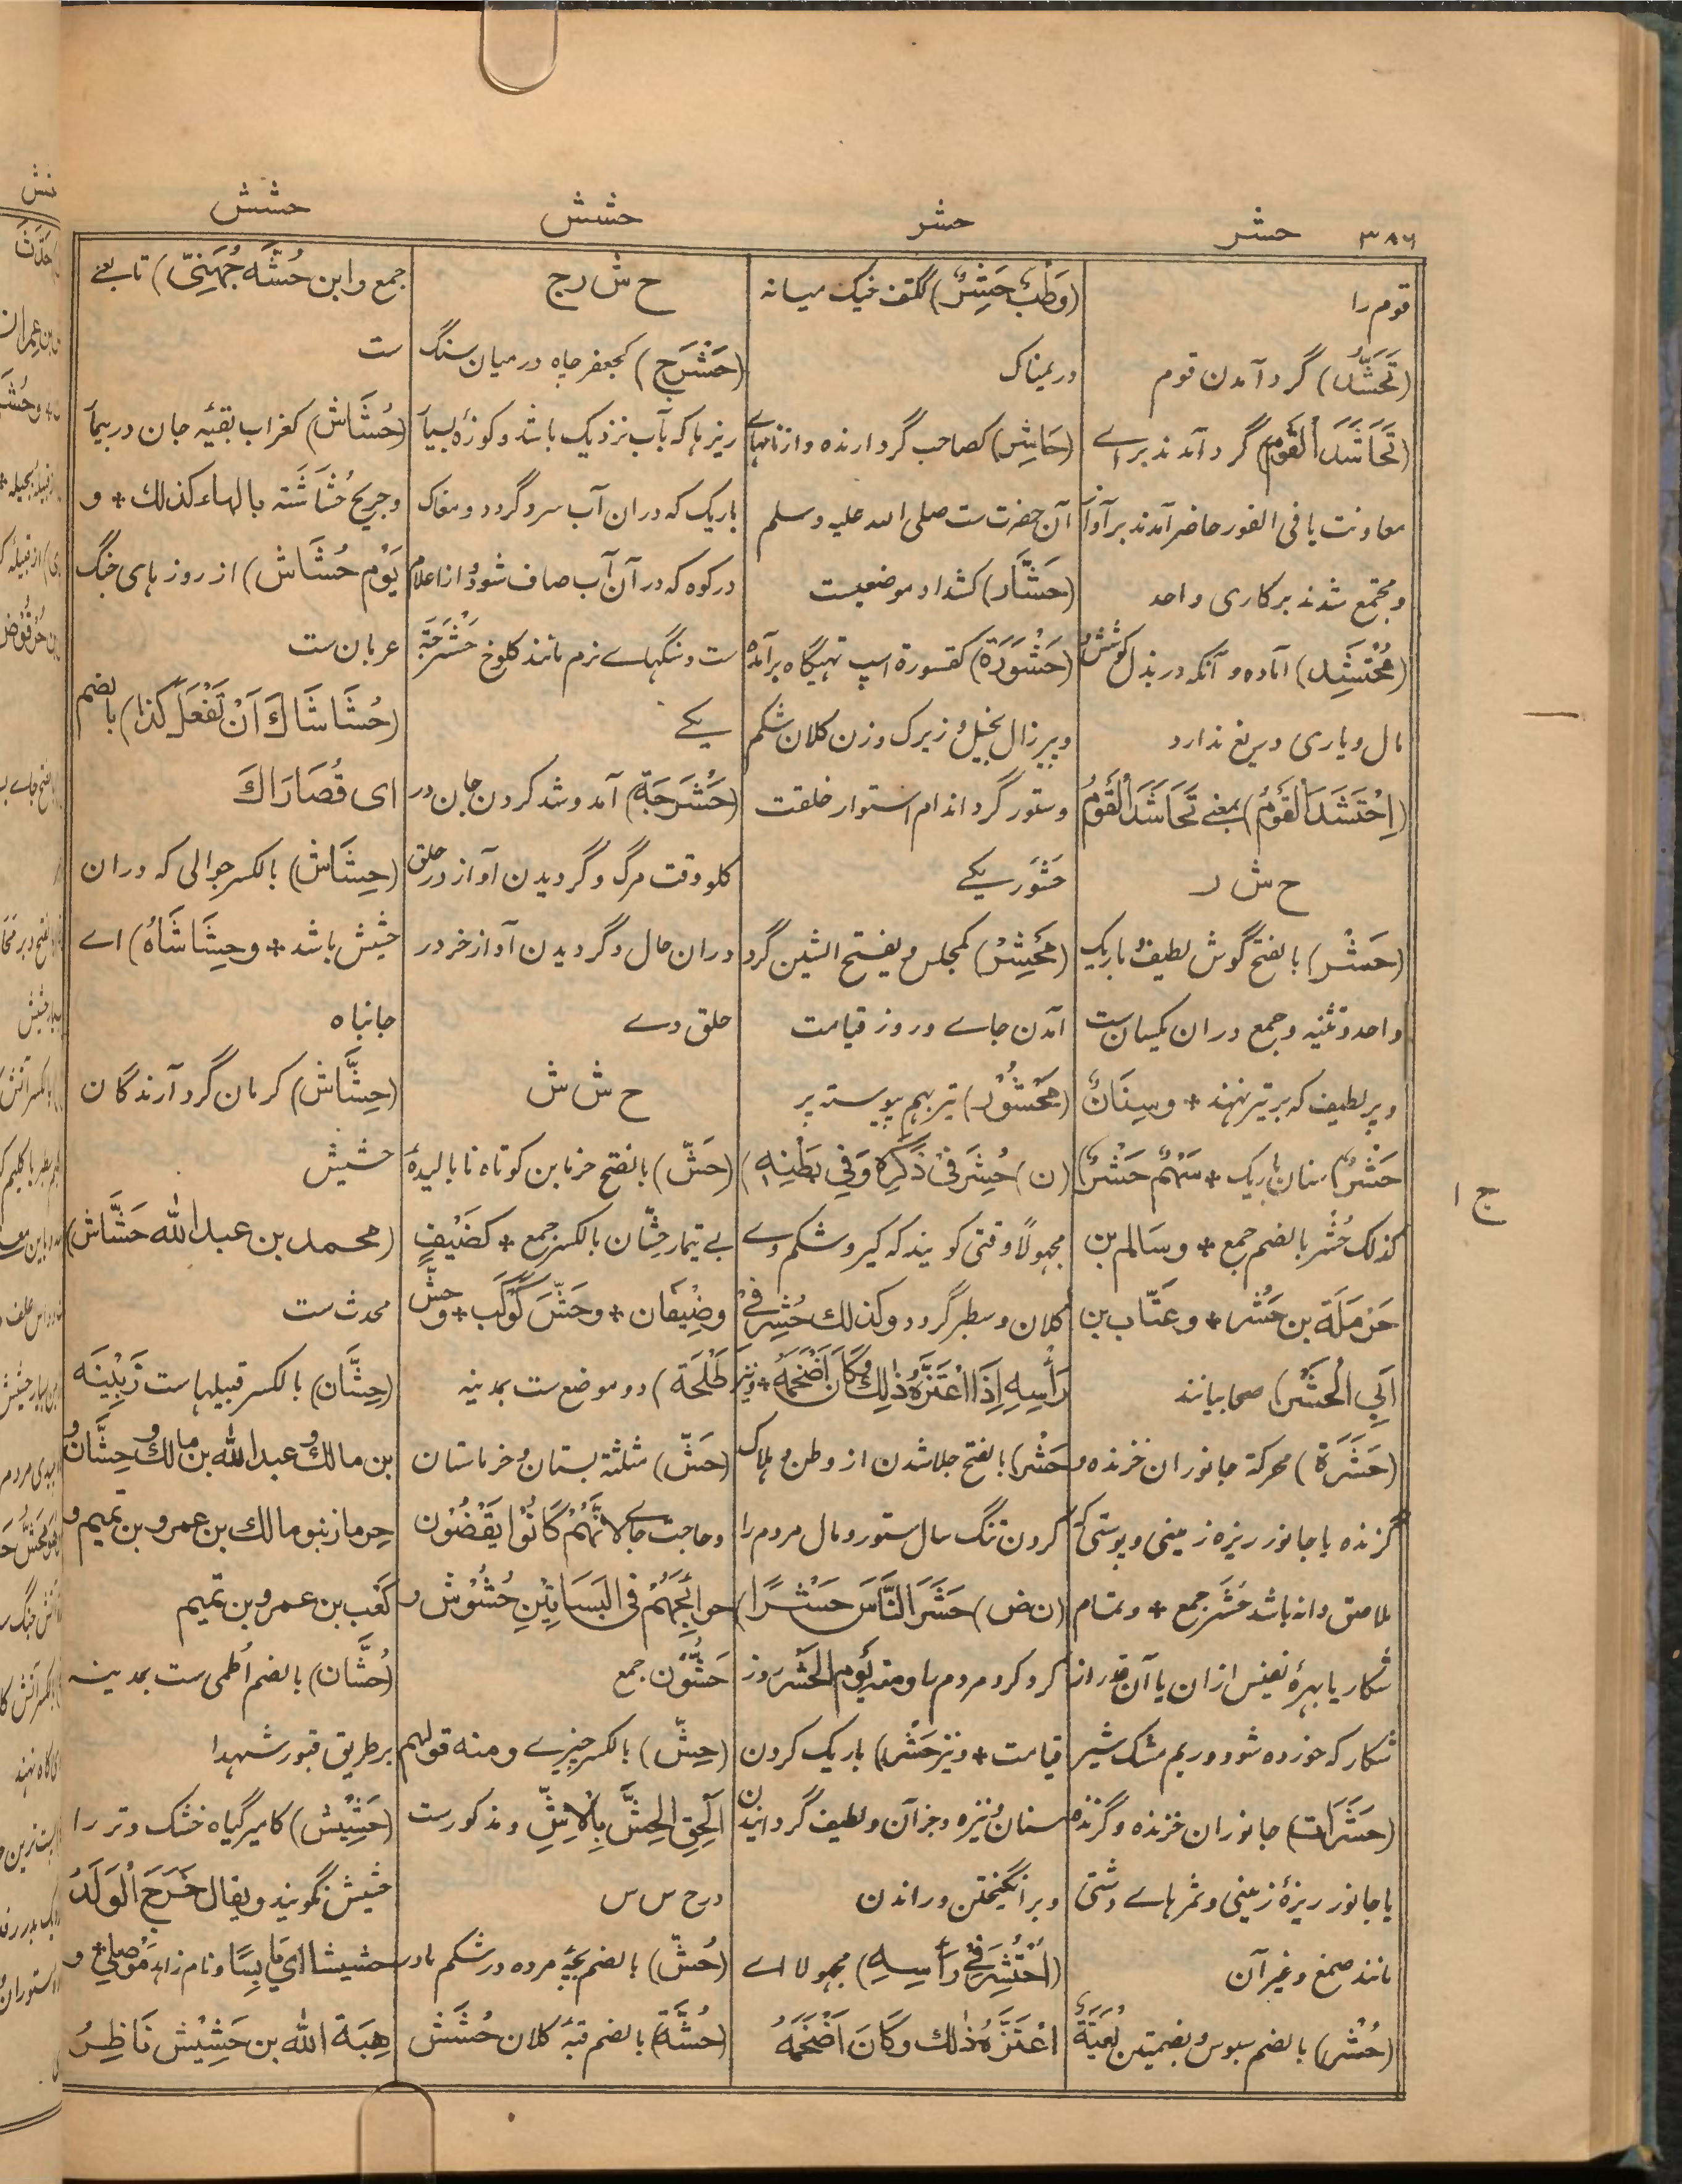 ۳۸۶ حشر حشر حشش حشش
قوم را
(تَحَشُّد) گرد آمدن قوم
(تَحَاشَدَ الْقَوْمُ) گرد آمدند برای
معاونت یا فی الفور حاضر آمدند بر آواز
و مجتمع شدند بر کاری واحد
(مُحْتَشِد) آماده و آنکه در بذل کوشش و
مال و یاری دریغ ندارد
(اِحْتَشَدَ الْقَوْمُ) بمعنے تَحَاشَدَ الْقَوْمُ
ح ش ر
(حَشْر) بالفتح گوش لطیف و باریک
واحد و تثنیه و جمع دران یکسان ست
و پر لطیف که بر تیر نهند + وسِنَانٌ
حَشْرٌ سنان باریک + سَهْمٌ حَشْرٌ)
کذلک حُشْر بالضم جمع + و سَالم بن
حَرْمَلَة بن حَشْر + و عَتَّاب بن
اَبِي الْحَشْر) صحابیانند
(حَشَرَة) محرکة جانوران خزنده و
گزنده یا جانور ریزه زمینی و پوستی که
ملاصق دانه باشد حَشَر جمع + و تمام
شکار یا بهرهٔ نفیس ازان یا آن قدر از
شکار که خورده شود و ریم مشک شیر
(حَشَرَات) جانوران خزنده و گزنده
یا جانور ریزهٔ زمینی و ثمرهاے دشتی
مانند صمغ و غیر آن
(حُشْر) بالضم سبوس و بضمتین لُغَيَّةٌ
(وَطْبٌ حَشِرٌ) ککتف خیک میانه
در یمناک
(حَاشِر) کصاحب گرد آرنده و از نامهاے
آن حضرت ست صلی الله علیه وسلم
(حَشَّار) کشداد موضعیست
(حَشْوَرَة) کقسورة اسپ تهیگاه برآمده
و پیر زال بخیل و زیرک و زن کلان شکم
و ستور گرد اندام استوار خلقت
حَشْوَر یکے
(مَحْشِر) کمجلس و یفتح الشین گرد
آمدن جاے و روز قیامت
(مَحْشُوْر) تیر بهم پیوسته پر
(ن) حُشِرَ فِيْ ذَكَرِهِ وَفِي بَطْنِهِ)
مجهولاً وقتی گویند که کیر و شکم وے
کلان و سطبر گردد و كذلك حُشِرَ فِيْ
رَأْسِهِ اِذَا اعْتَزَّهُ ذٰلِكَ وَكَانَ اَضْخَمَهُ + و نیز
حَشْر) بالفتح جلا شدن از وطن و هلاک
کردن تنگ سال ستور و مال مردم را
(ن ض) حَشَرَ النَّاسَ حَشْرًا)
گرد کرد مردم را و منه يَوْم الْحَشْر روز
قیامت + و نیز حَشْر) باریک کردن
سنان و نیزه و جز آن و لطیف گردانیدن
و برانگیختن و راندن
(اُحْتُشِرَ فِيْ رَأْسِهِ) مجهولا اے
اعْتَزَّهُ ذٰلك وَكَانَ اَضْخَمَهُ
ح ش ر ج
(حَشْرَج) کجعفر چاه درمیان سنگ
ریزها که بآب نزدیک باشد و کوزهٔ بسیار
باریک که دران آب سرد گردد و مغاک
در کوه که در آن آب صاف شود و از اعلام
ست و سنگهاے نرم مانند کلوخ حَشْرَجَة
یکے
(حَشْرَجَة) آمد و شد کردن جان در
گلو وقت مرگ و گردیدن آواز در حلق
دران حال و گردیدن آواز خر در
حلق وے
ح ش ش
(حَشّ) بالفتح خرمابن کوتاه نابالیدهٔ
بے تیمار حِشَّان بالکسر جمع + كضَيْف
و ضِيْفَان + و حَشَّ كَوْكَب + وحَشّ
طَلْحَة) دو موضع ست بمدینه
(حَشّ) مثلثة بستان و خرماستان
و حاجت جاے لِاَنَّهُمْ كَانُوْا يَقْضُوْنَ
حَوائِجَهُمْ فى الْبَسَاتِيْنِ حُشُوْش و
حَشُّوْن جمع
(حِشّ) بالکسر چیزے و منه قولهم
اَلْحِقِ الْحِشَّ بِالْاِشِّ و مذکورست
در ح س س
(حُشّ) بالضم بچهٔ مرده در شکم مادر
(حُشَّة) بالضم قبهٔ کلان حُشَش
جمع و ابن حُشَّه جُهَيْنِيّ) تابعے
ست
(حُشَاش) کغراب بقیهٔ جان در بیمار
و جریح حُشَاشَة بالهاء كذلك + و
يَوْم حُشَاش) از روزهای جنگ
عربان ست
(حُشَاشَاكَ اَنْ تَفْعَلَ كَذَا) بالضم
ای قُصَارَاكَ
(حِشَاش) بالکسر جوالی که دران
حشیش باشد + و حِشَاشَاهُ) اے
جانباه
(حِشَّاش) کرمان گرد آرندگان
حشیش
(محمد بن عبد الله حَشَّاش)
محدث ست
(حِشَّان) بالکسر قبیلها ست زَبِيْنَه
بن مالك و عبد الله بن مالك و حِشَّان و
حِرماز بنو مالك بن عمرو بن تميم و
كَعْب بن عمرو بن تميم
(حُشَّان) بالضم اُطمی ست بمدینه
بر طریق قبور شهدا
(حَشِيْش) کامیر گیاه خشک و تر را
حشیش نگویند و یقال خَرَجَ الْوَلَدُ
حشیشا ای يَابِسًا و نام زاهد مَوْصِلِيّ + و
هِبَة الله بن حَشِيْش نَاظِرُ
ج ۱